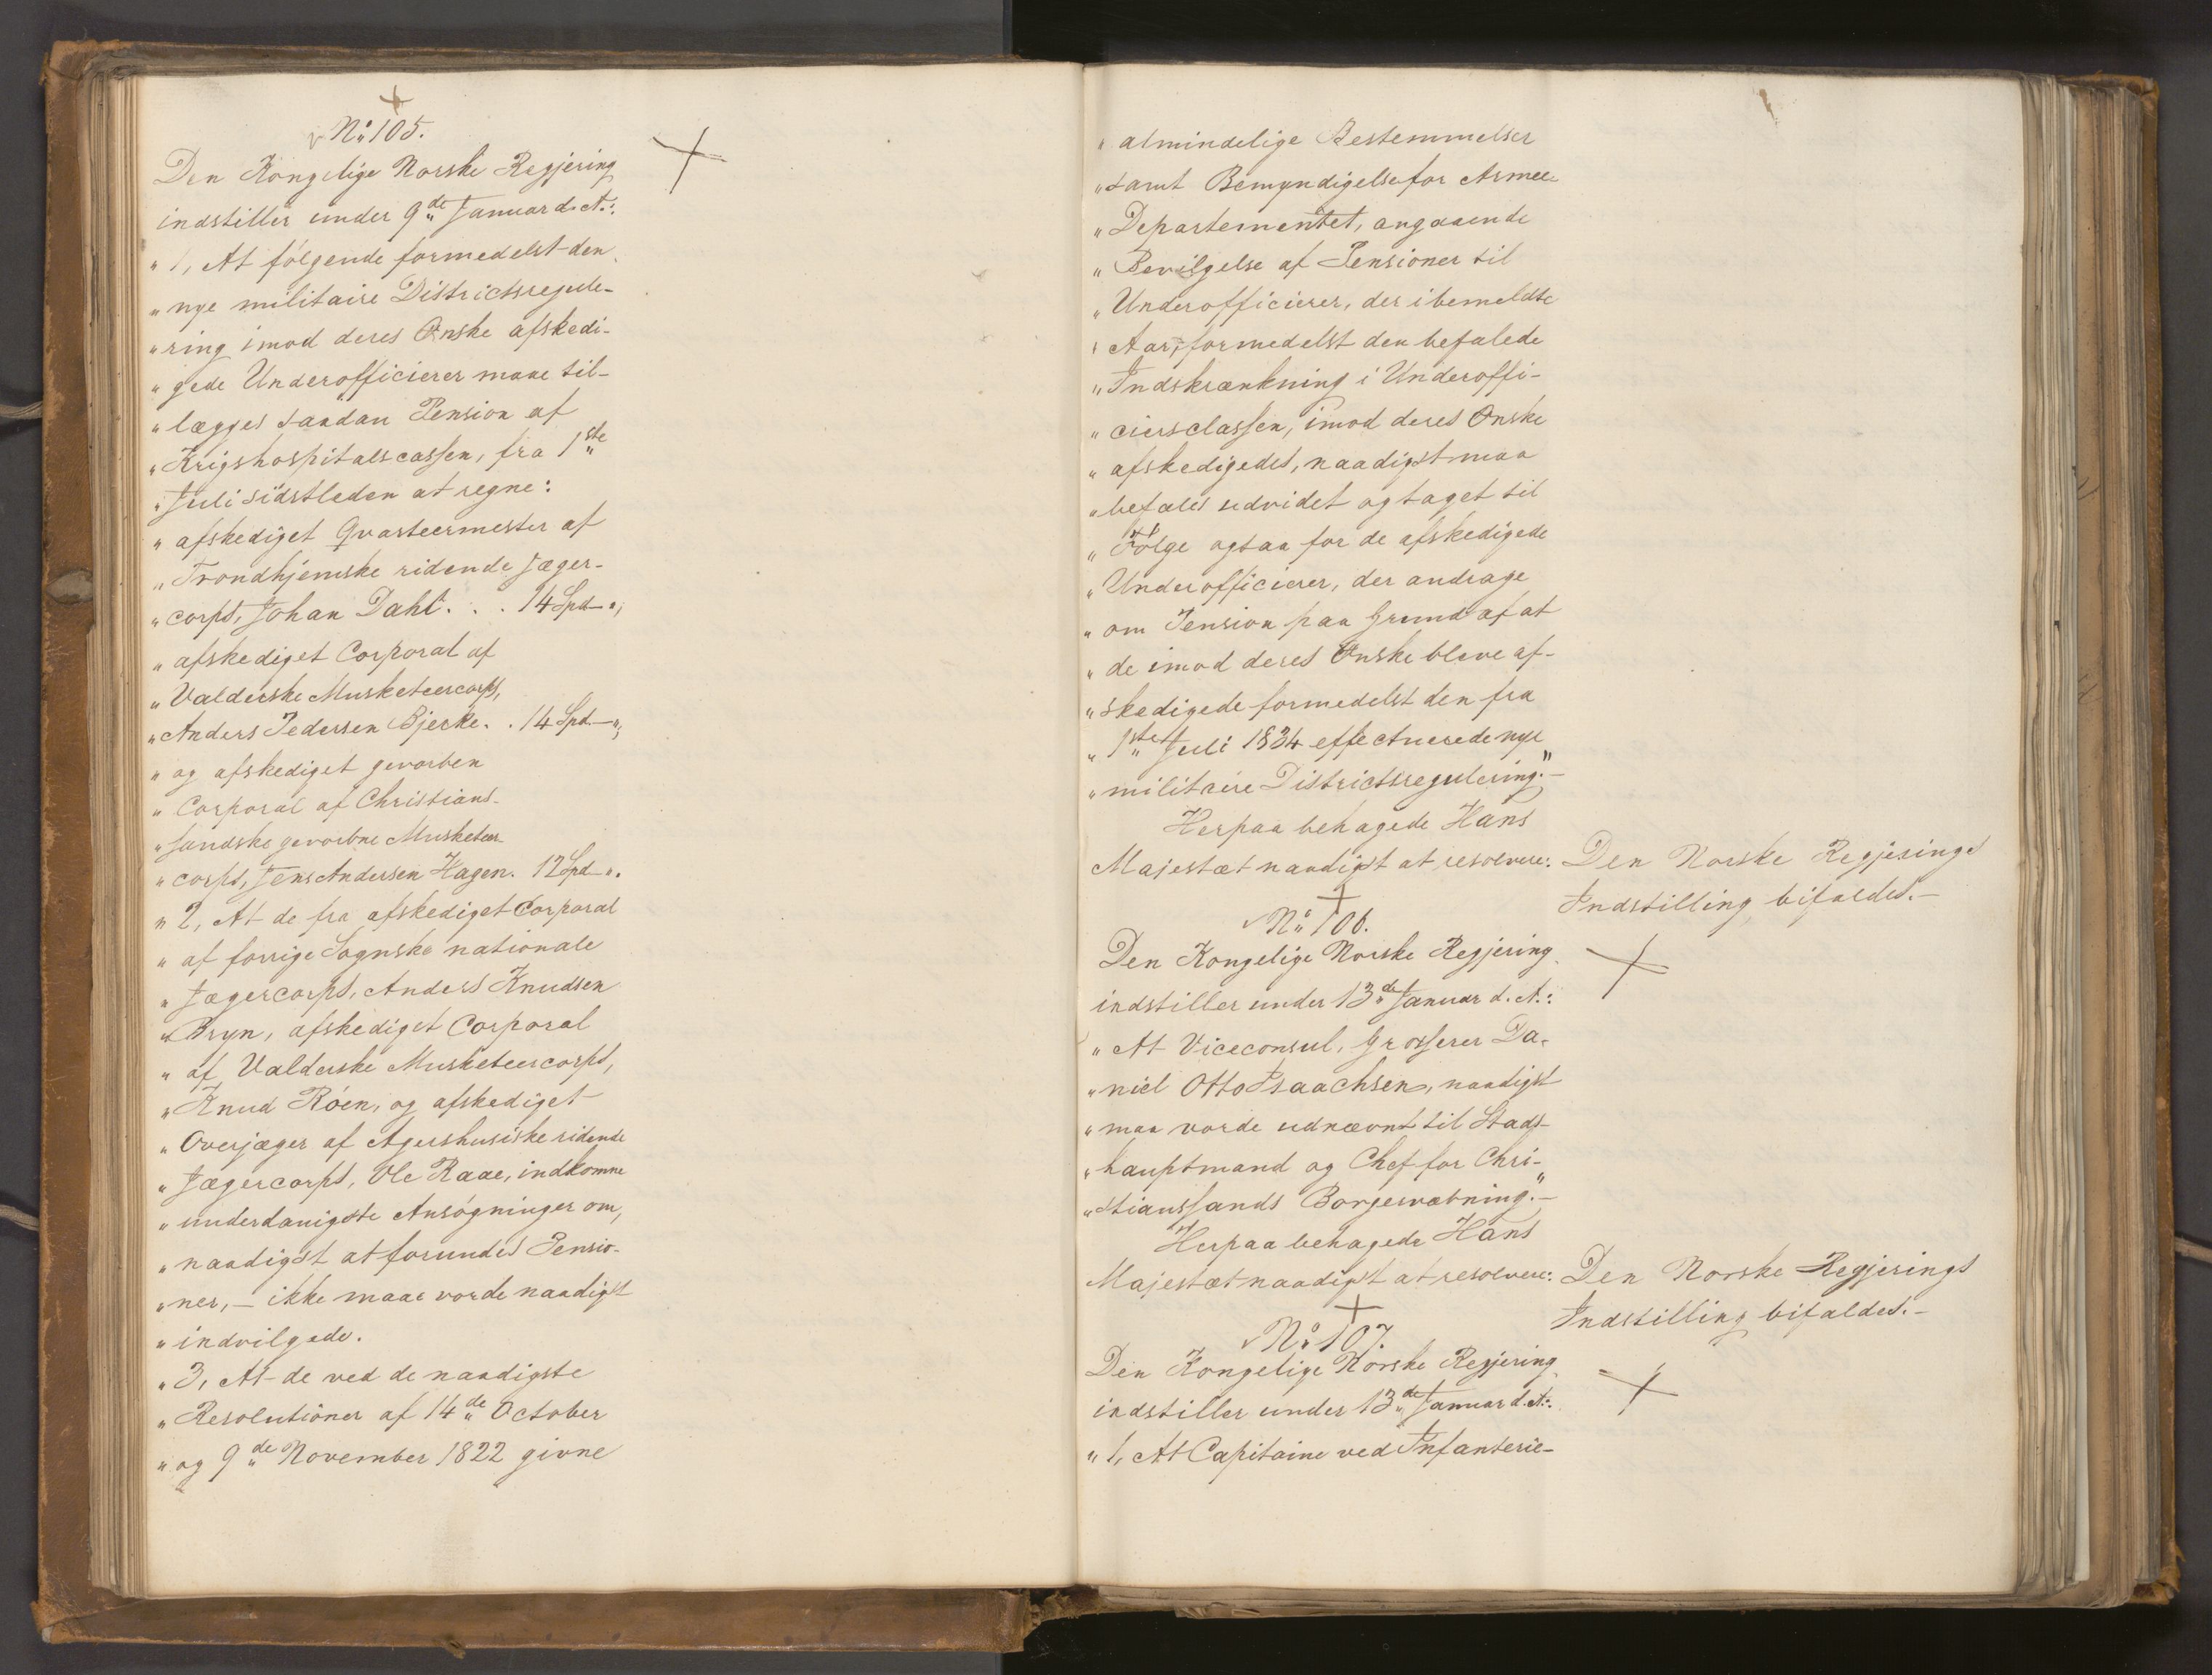 No 105.
Den Kongelige Norske Regjering
indstiller under 9de Januar d. A.:
" 1, At følgende formedelst den
" nye militaire Districtsregule-
" ring imod deres Ønske afskedi-
" gede Underofficierer maae til-
" lægges saadan Pension af
" Krigshospitalscassen, fra 1ste
" Juli sidstleden at regne:
" afskediget Qvarteermester af
" Trondhjemske ridende Jæger-
" corps, Johan Dahl . . . 14 Spd. -",
" afskediget Corporal af
" Valderske Musketeercorps,
" Anders Pedersen Bjerke. . 14 Spd. -",
" og afskediget gevorben
" Corporal af Christians-
" sandske gevorbne Musketeer-
" corps, Jens Andersen Hagen. 12 Spd. -".
" 2, At de fra afskediget Corporal
" af forrige Sognske nationale
" Jægercorps, Anders Knudsen
" Bryn, afskediget Corporal
" af Valderske Musketeercorps,
" Knud Röen, og afskediget
" Overjæger af Agershusiske ridende
" Jægercorps, Ole Raae, indkomne
" underdanigste Ansøgninger om,
" naadigst at forundes Pensio-
" ner, – ikke maae vorde naadigst
" indvilgede.
" 3, At de ved de naadigste
" Resolutioner af 14de October
" og 9de November 1822 givne
" almindelige Bestemmelser
" samt Bemyndigelse for Armee-
" Departementet, angaaende
" Bevilgelse af Pensioner til
" Underofficierer, der i bemeldte
" Aar, formedelst den befalede
" Indskrænkning i Underoffi-
" ciersclassen, imod deres Ønske
" afskedigedes, naadigst maa
" befales udvidet og taget til
" Følge ogsaa for de afskedigede
" Underofficierer, der andrage
" om Pension paa Grund af at
" de imod deres Ønske bleve af-
" skedigede formedelst den fra
" 1ste Juli 1834 effectuerede nye
" militaire Districtsregulering." –
Herpaa behagede Hans
Majestæt naadigst at resolvere:
Den Norske Regjerings
Indstilling bifaldes. –
No 106.
Den Kongelige Norske Regjering
indstiller under 13de Januar d. A.:
" At Viceconsul, Grosserer Da-
" niel Otto Isaachsen, naadigst
" maa vorde udnævnt til Stads-
" hauptmand og Chef for Chri-
" stianssands Borgervæbning." –
Herpaa behagede Hans
Majestæt naadigst at resolvere:
Den Norske Regjerings
Indstilling bifaldes. –
No 107.
Den Kongelige Norske Regjering
indstiller under 13de Januar d. A.:
" 1, At Capitaine ved Infanterie-